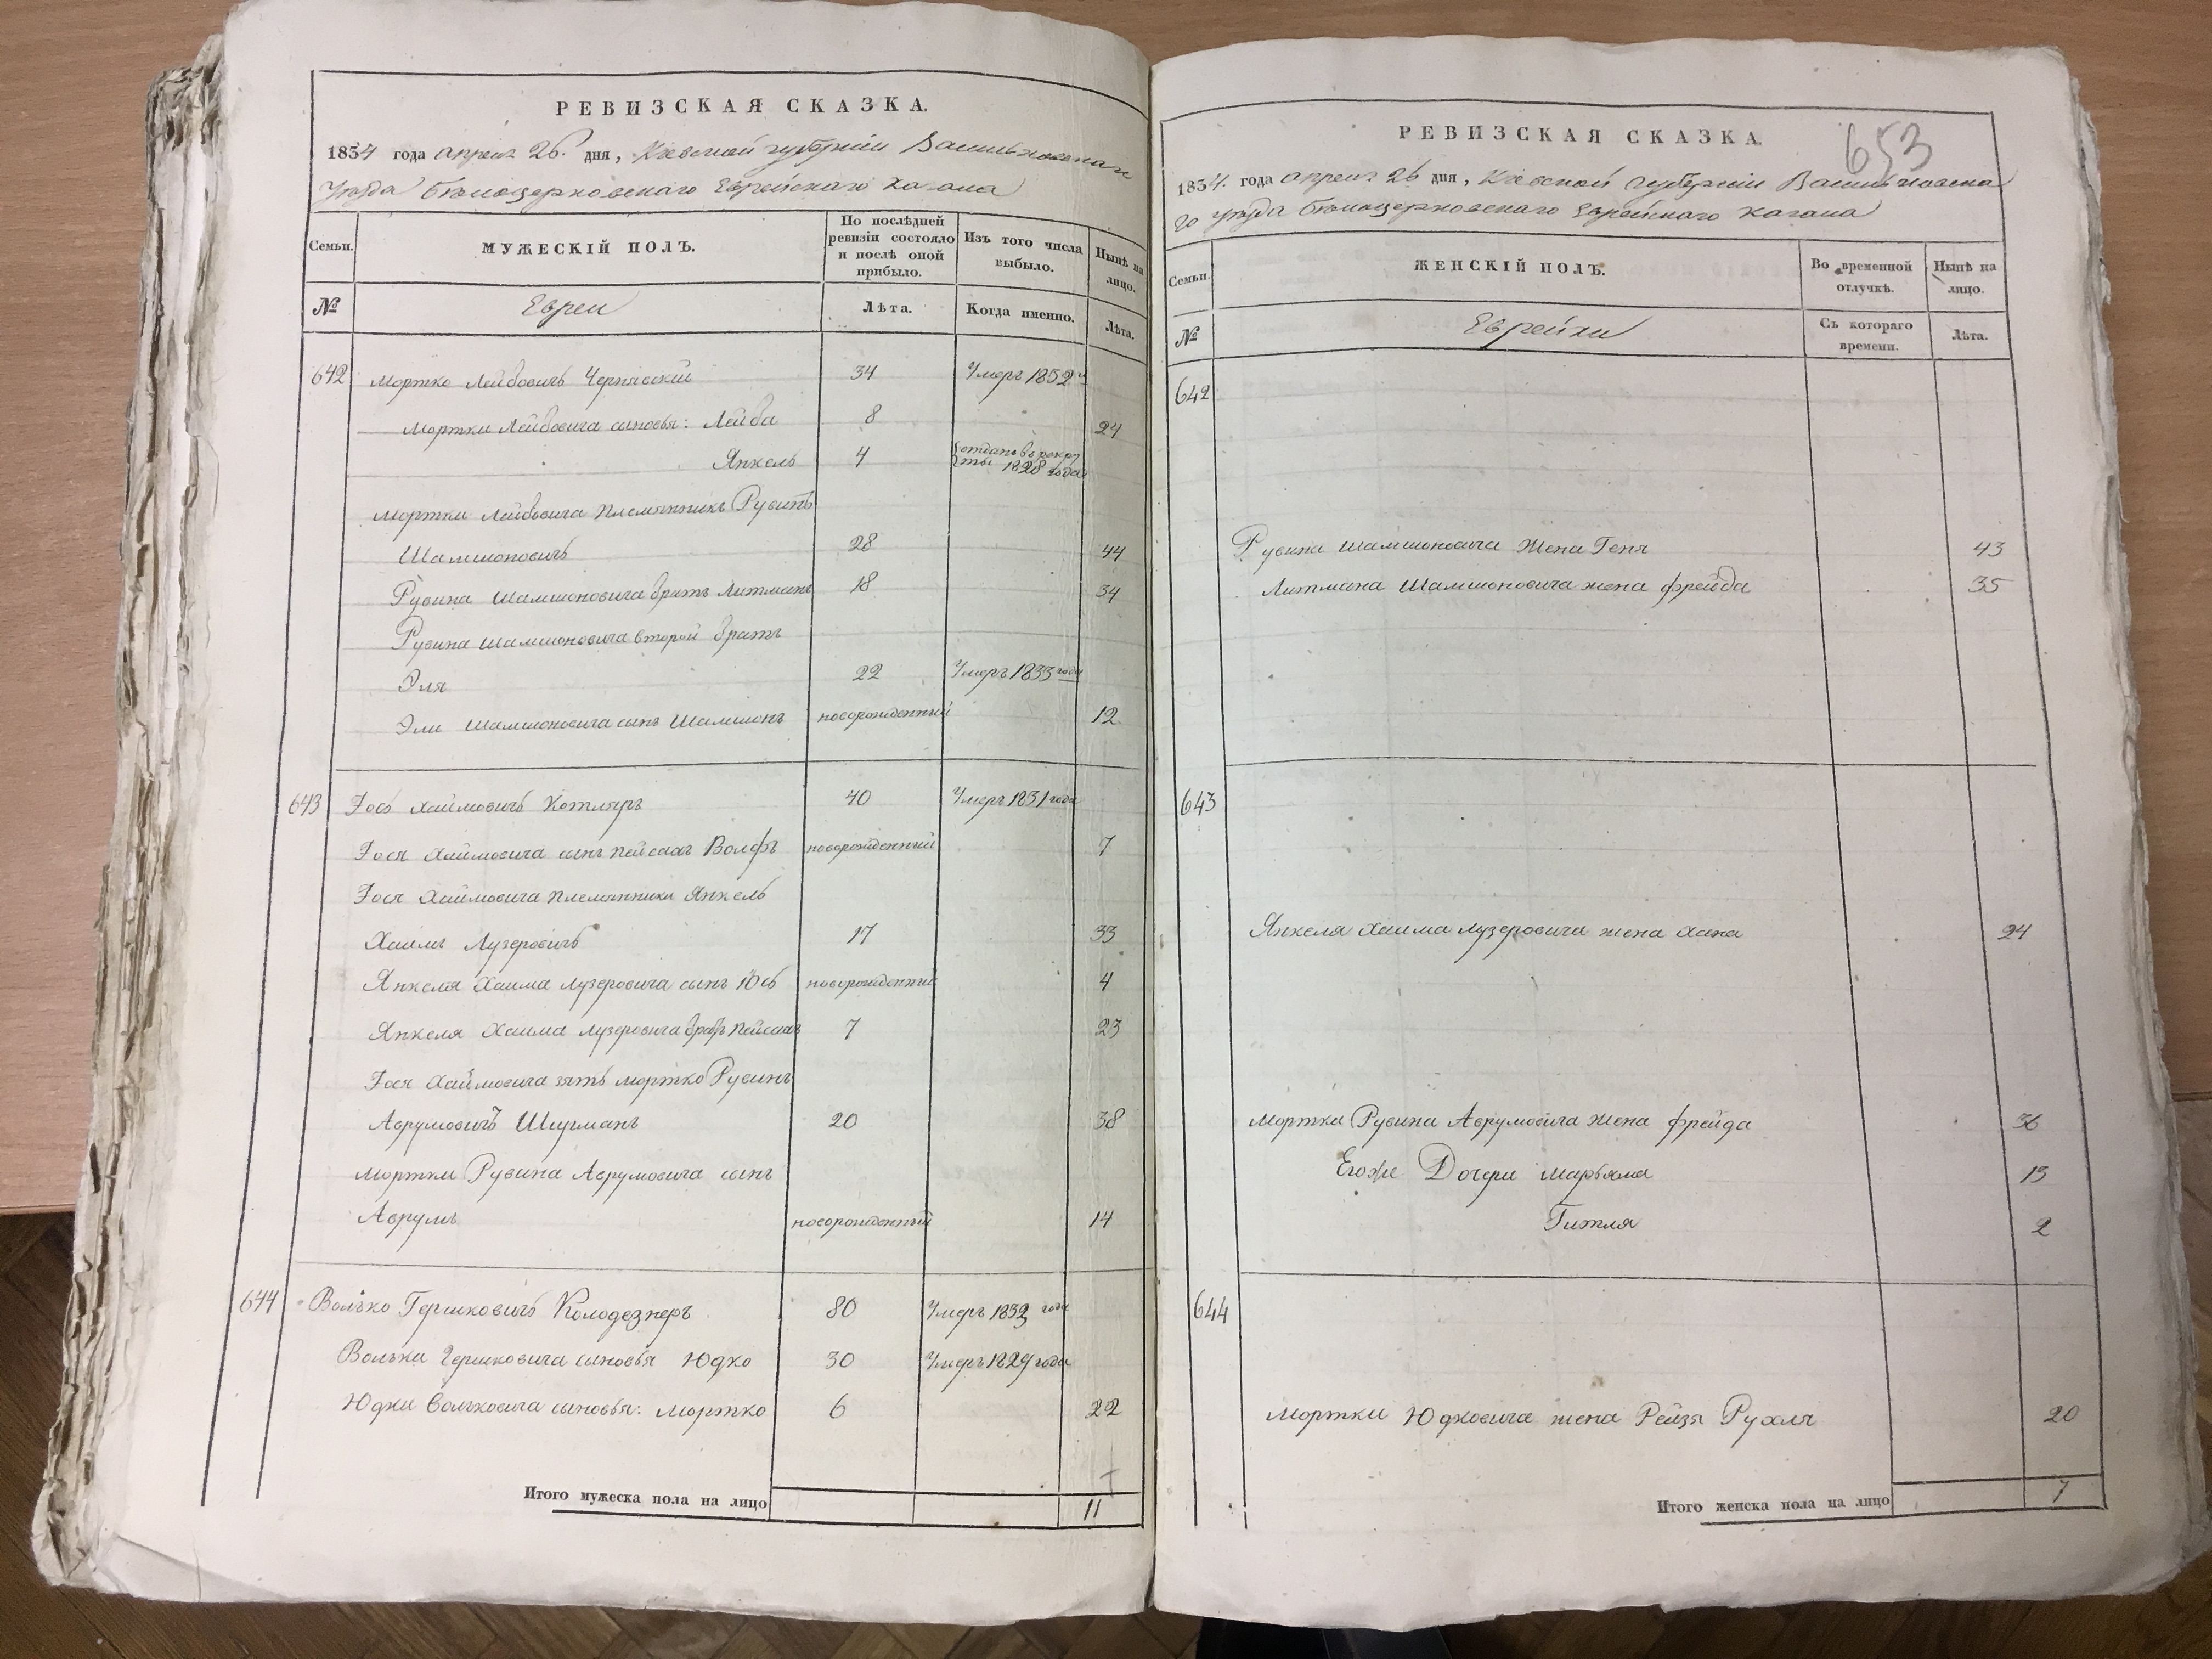 РЕВИЗСКАЯ СКАЗКА.
1834 года апреля 26. дня, Кіевской губерніи Васильковскаго
уезда белоцерковскаго Еврейскаго кагала
Семьи.
МУЖЕСКІЙ ПОЛЪ.
По послѣдней ревизіи состояло и послѣ оной прибыло.
Изъ того числа выбыло.
Нынѣ на лицо.
№
Евреи
Лѣта.
Когда именно.
Лѣта.
642 Мортко Лейбовичъ Чернявскій 34 Умеръ 1832 г
Мортки Лейбовича сыновья: Лейба 8 24
Янкель 4 отданъ в рекруты 1828 года
Мортки Лейбовича племянникъ Рувинъ
Шамшоновичъ 28 44
Рувина Шамшоновича братъ Литманъ 18 34
Рувина Шамшоновича второй братъ
Эля 22 Умеръ 1833 года
Эли Шамшоновича сынъ Шамшонъ новорожденный 12
643 Іось Хаимовичъ Котляръ 40 Умеръ 1831 года
Іося Хаймовича сынъ Пейсахъ Волфъ новорожденный 7
Іося Хаймовича племянники Янкель
Хаимъ Лузеровичъ 17 33
Янкеля Хаима Лузеровича сынъ Юсь новорожденный 4
Янкеля Хаима Лузеровича братъ Пейсахъ 7 23
Іося Хаймовича зять Мортко Рувинъ
Аврумовичъ Шугманъ 20 38
Мортки Рувина Аврумовича сынъ
Аврумъ новорожденный 14
644 Волько Гершковичъ Колодезнеръ 80 Умеръ 1832 года
Вольки Гершковича сыновья Юдко 30 Умеръ 1829 года
Юдки Вольковича сыновья: Мортко 6 22
Итого мужеска пола на лицо 11
653
РЕВИЗСКАЯ СКАЗКА.
1834. года апреля 26 дня, Кіевской губерніи Васильковска
го уезда белоцерковскаго Еврейскаго кагала
Семьи.
ЖЕНСКІЙ ПОЛЪ.
Во временной отлучкѣ.
Нынѣ на лицо.
№
Еврейки
Съ котораго времени.
Лѣта.
642
Рувина Шамшоновича жена Геня 43
Литмана Шамшоновича жена фрейда 35
643
Янкеля Хаима Лузеровича жена Хана 24
Мортки Рувина Аврумовича жена фрейда 36
Егоже Дочери Марьяма 13
Гитля 2
644
Мортки Юдковича жена Рейзя Рухля 20
Итого женска пола на лицо 7